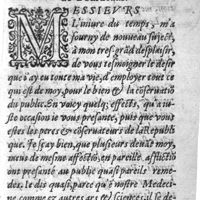 MESSIEVRS.
M L'iniure du temps, m'a
fourny de nouueau suject,
à mon tresgrãd desplaisir,
de vous tesmoigner le desir
que i'ay eu toute ma vie, d'employer tout ce
qui est de moy, pour le biẽ & la cõseruatiõ
du public. En voicy quelq; effects, qu'à iu-
ste occasion ie vous presante, puis que vous
estes les peres & cõseruateurs de la Republi
que. Ie sçay bien, que plusieurs deuãt moy,
meus de mesme affectiõ, en pareille afflictiõ
ont presanté au public quasi pareils reme-
des. Ie dis quasi, parce qu'é nostre Medeci-
ne, comme ez autres ars & sciences, il se de-